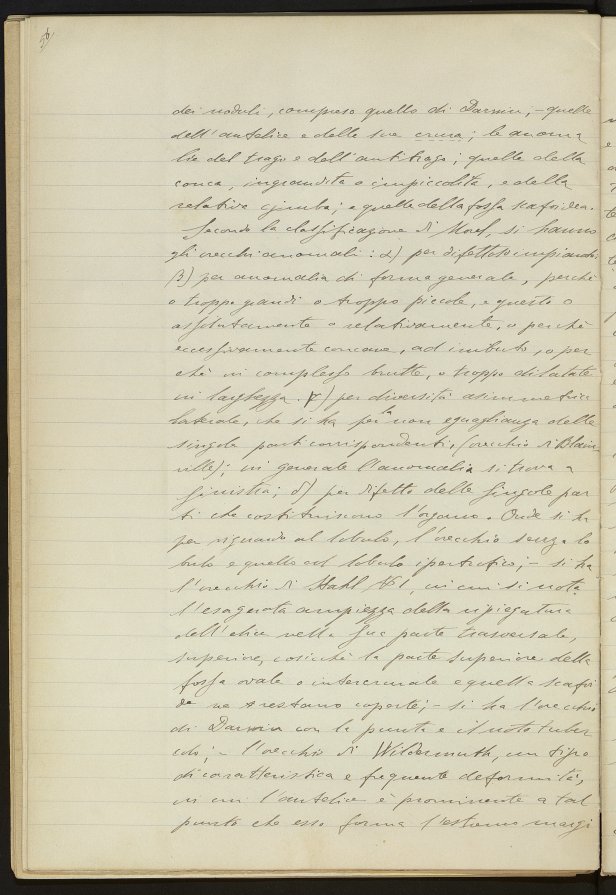 56
dei noduli, compreso quello di Darwin, – quelle
dell'antelice e delle sue crura; le anoma
lie del trago e dell'antitrago; quelle della
conca, ingrandita o impiccolita, e della
relativa cimba; e quelle della fossa scafoidea.
Secondo la classificazione di Morel, si hanno
gli orecchi anomali: α) per difettoso impianto;
β) per anomalia di forma generale, perchè
o troppo grandi o troppo piccole, e questo o
assolutamente o relativamente, o perchè
eccessivamente concave, ad imbuto, o per
chè in complesso brutte, o troppo dilatate
in larghezza. γ) per diversità asimmetria
laterale, che si ha per la non eguaglianza delle
singole parti corrispondenti, (orecchio di Blain
ville); in generale l'anomalia si trova a
sinistra; δ) per difetto delle singole par
ti che costituiscono l'organo. Onde si ha
per riguardo al lobulo, l'orecchio senza lo
bulo e quello col lobulo ipertrofico; – si ha
l'orecchio di Stahl N 1, in cui si nota
l'esagerata ampiezza della ripiegatura
dell'elice nella sua parte trasversale,
superiore, cosicchè la parte superiore della
fossa ovale o intercrurale e quella scafoi
dea ne restano coperte; – si ha l'orecchio
di Darwin con la punta e il noto tuber
colo; – l'orecchio di Wildermuth, un tipo
di caratteristica e frequente deformità,
in cui l'antelice è prominente a tal
punto che esso forma l'estremo margi